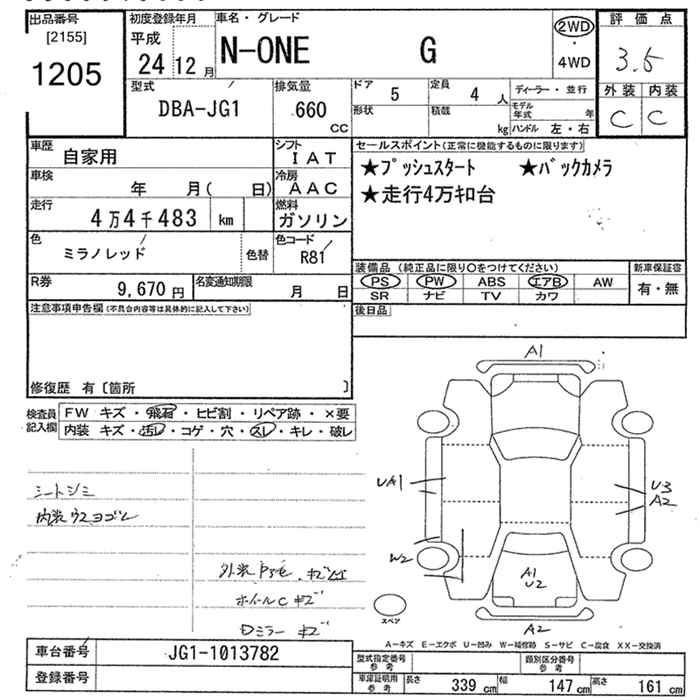 出品番号 初度登録年月 車名・グレード 評価点
[2155] 平成 N-ONE G 2WD
1205 24 12月 ・4WD 3.5
型式 排気量 ドア 5 定員 4人 ディーラー・並行 外装 内装
DBA-JG1 660 CC 形状 積載 kg モデル年式 年 C C
ハンドル 左・右
車歴 自家用 シフト IAT セールスポイント(正常に機能するものに限ります)
車検 年 月( 日) 冷房 AAC ★プッシュスタート ★バックカメラ
走行 4万4千483 km 燃料 ガソリン ★走行4万キロ台
色 ミラノレッド 色替 色コード R81
装備品 (純正品に限り〇をつけてください) 新車保証書
R券 9,670円 名変通知期限 月 日 PS PW ABS エアB AW 有・無
SR ナビ TV カワ
注意事項申告欄(不具合内容等は具体的に記入して下さい) 後日品
修復歴 有〔箇所 〕
検査員記入欄 FW キズ・飛石・ヒビ割・リペア跡・×要
内装 キズ・汚レ・コゲ・穴・スレ・キレ・破レ
A1
UA1 U3
A2
シートシミ
内装ウスヨゴレ
W2
外装 キズ
A1
U2
ホイールC キズ
Dミラー キズ
スペア
A2
A-キズ E-エクボ U-凹み W-補修跡 S-サビ C-腐食 XX-交換済
車台番号 JG1-1013782 型式指定番号 参考 類別区分番号 参考
登録番号 車庫証明用 参考 長さ 339cm 幅 147cm 高さ 161cm